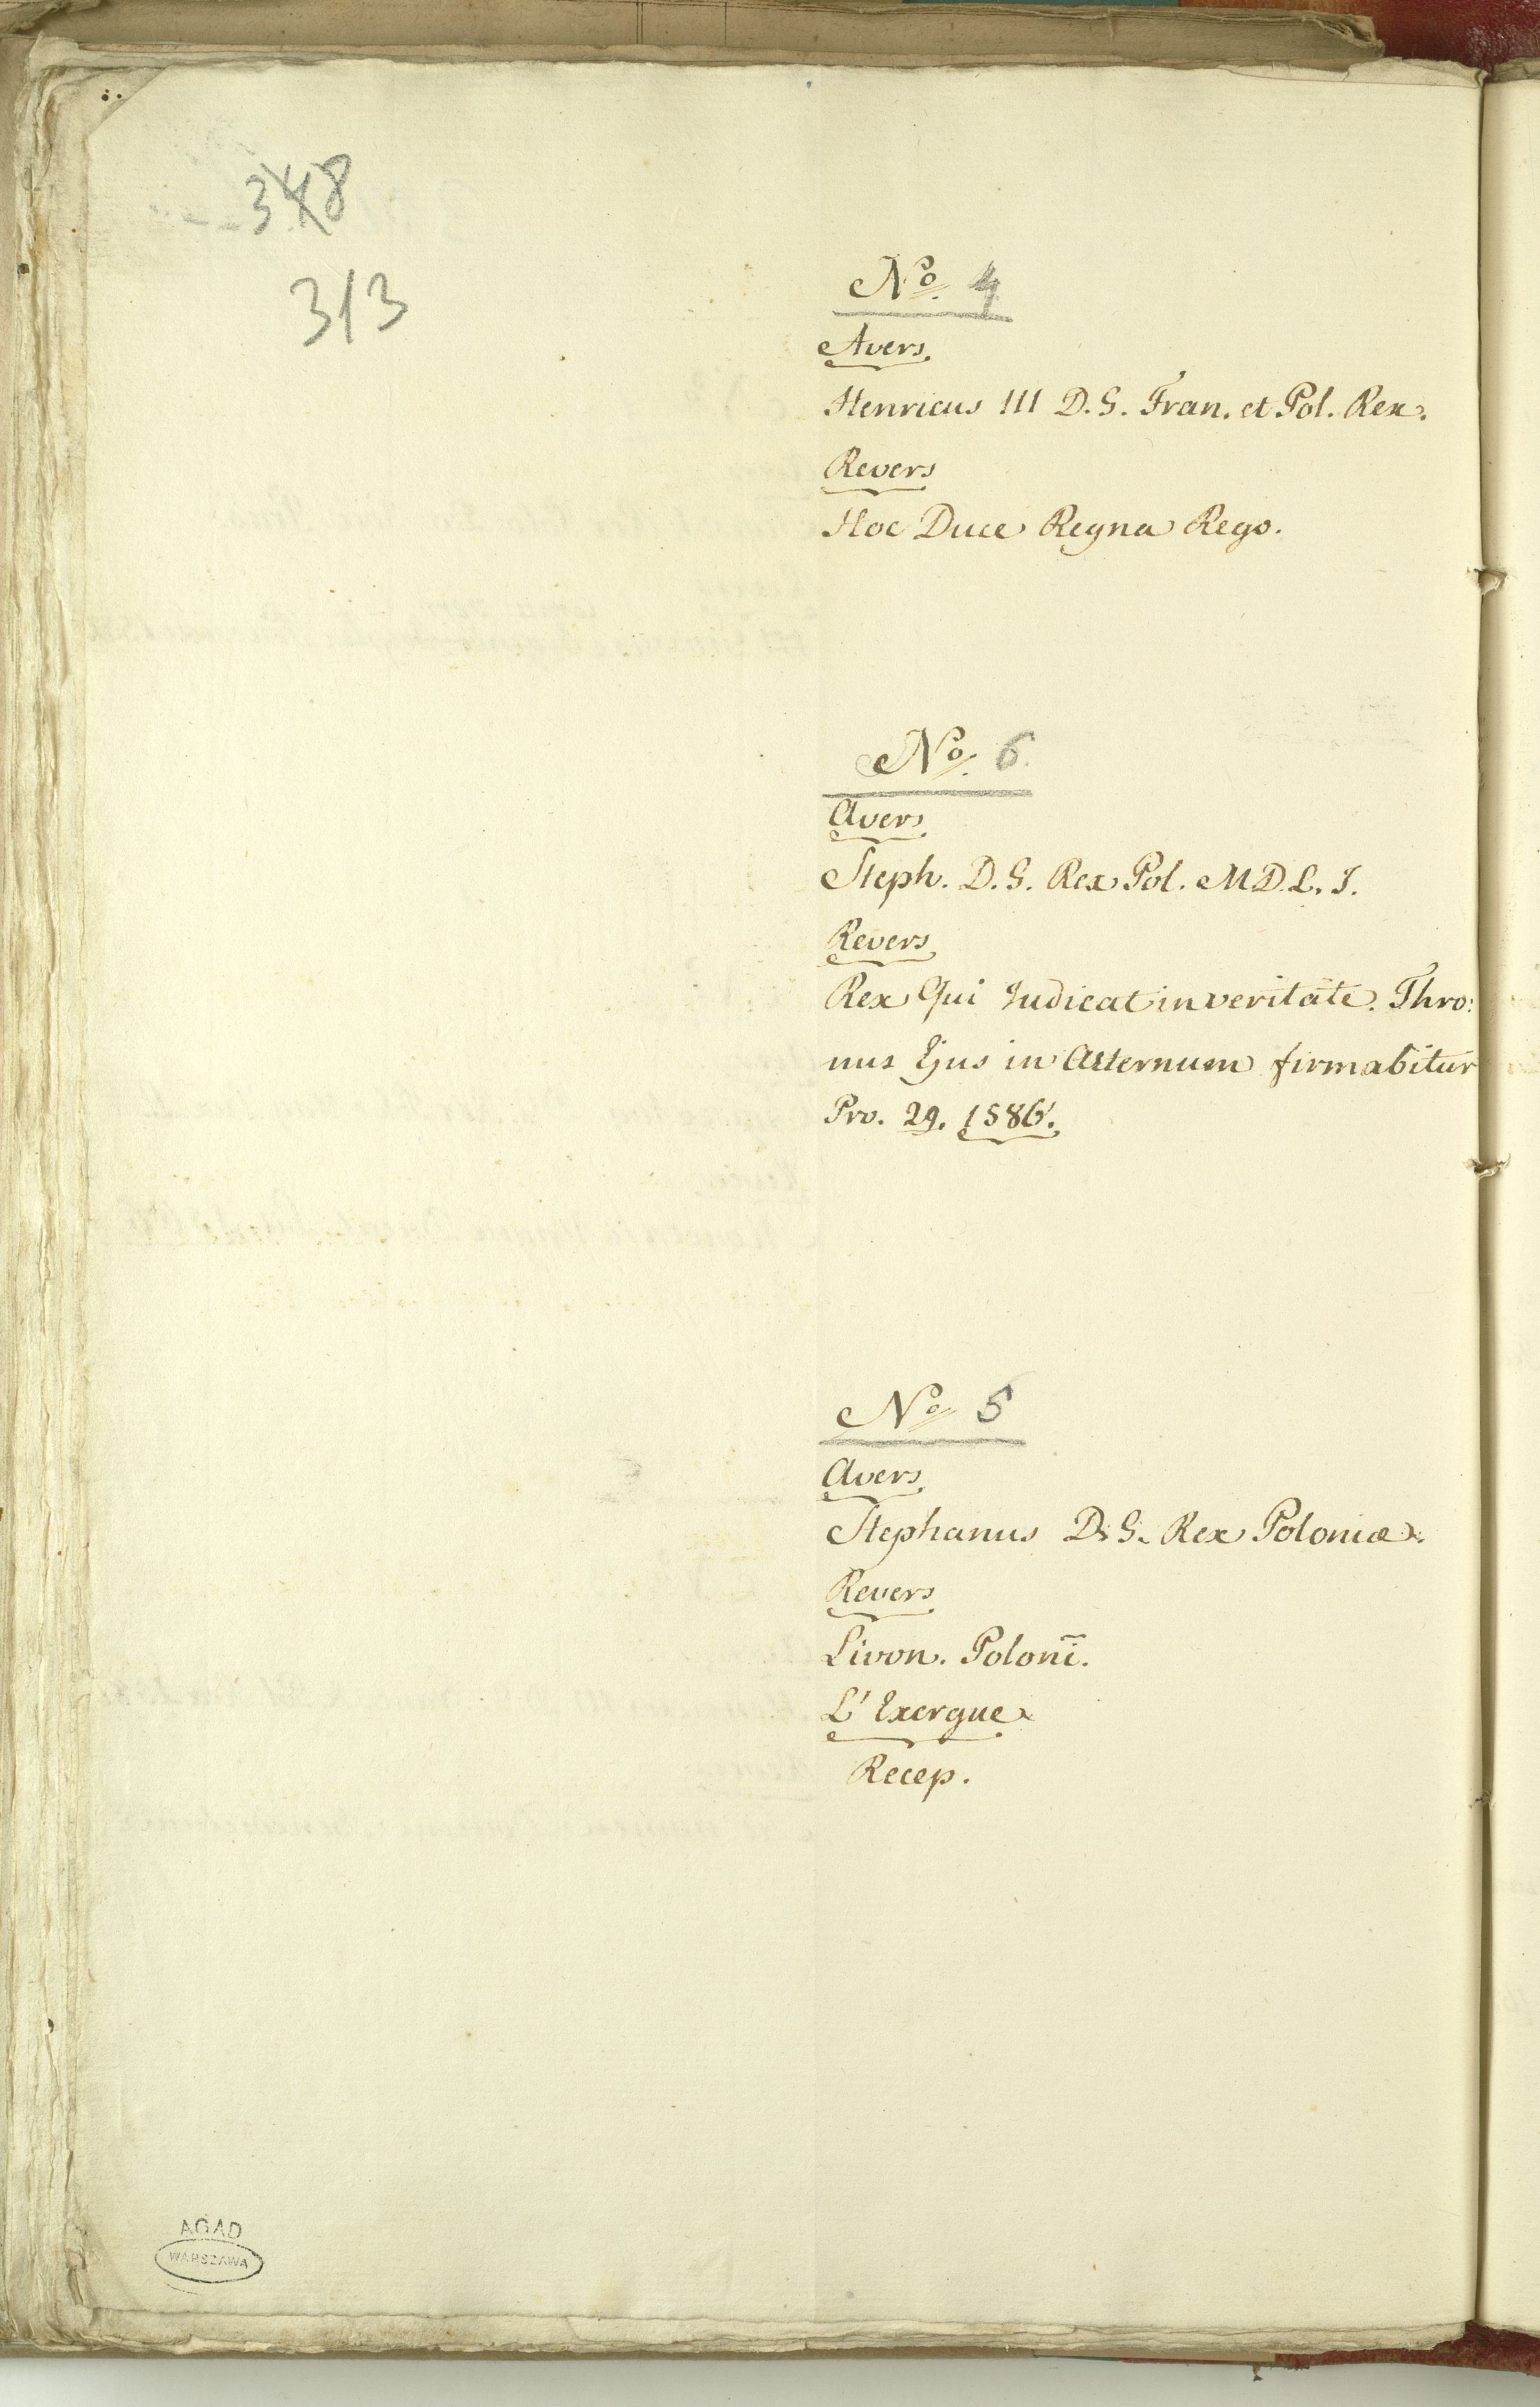 348
313
No. 4
Avers
Henricus III D. G. Fran. et Pol. Rex.
Revers
Hoc Duce Regna Rego.
No. 6.
Avers
Steph. D. G. Rex Pol. M D. L. I.
Revers
Rex Qui Iudicat in veritate. Thro:
nus Ejus in Aeternum firmabitur
Pro. 29. 1586.
No. 5
Avers
Stephanus D. G. Rex Poloniæ.
Revers
Livon. Poloni.
L'Exergue
Recep.
AGAD
WARSZAWA